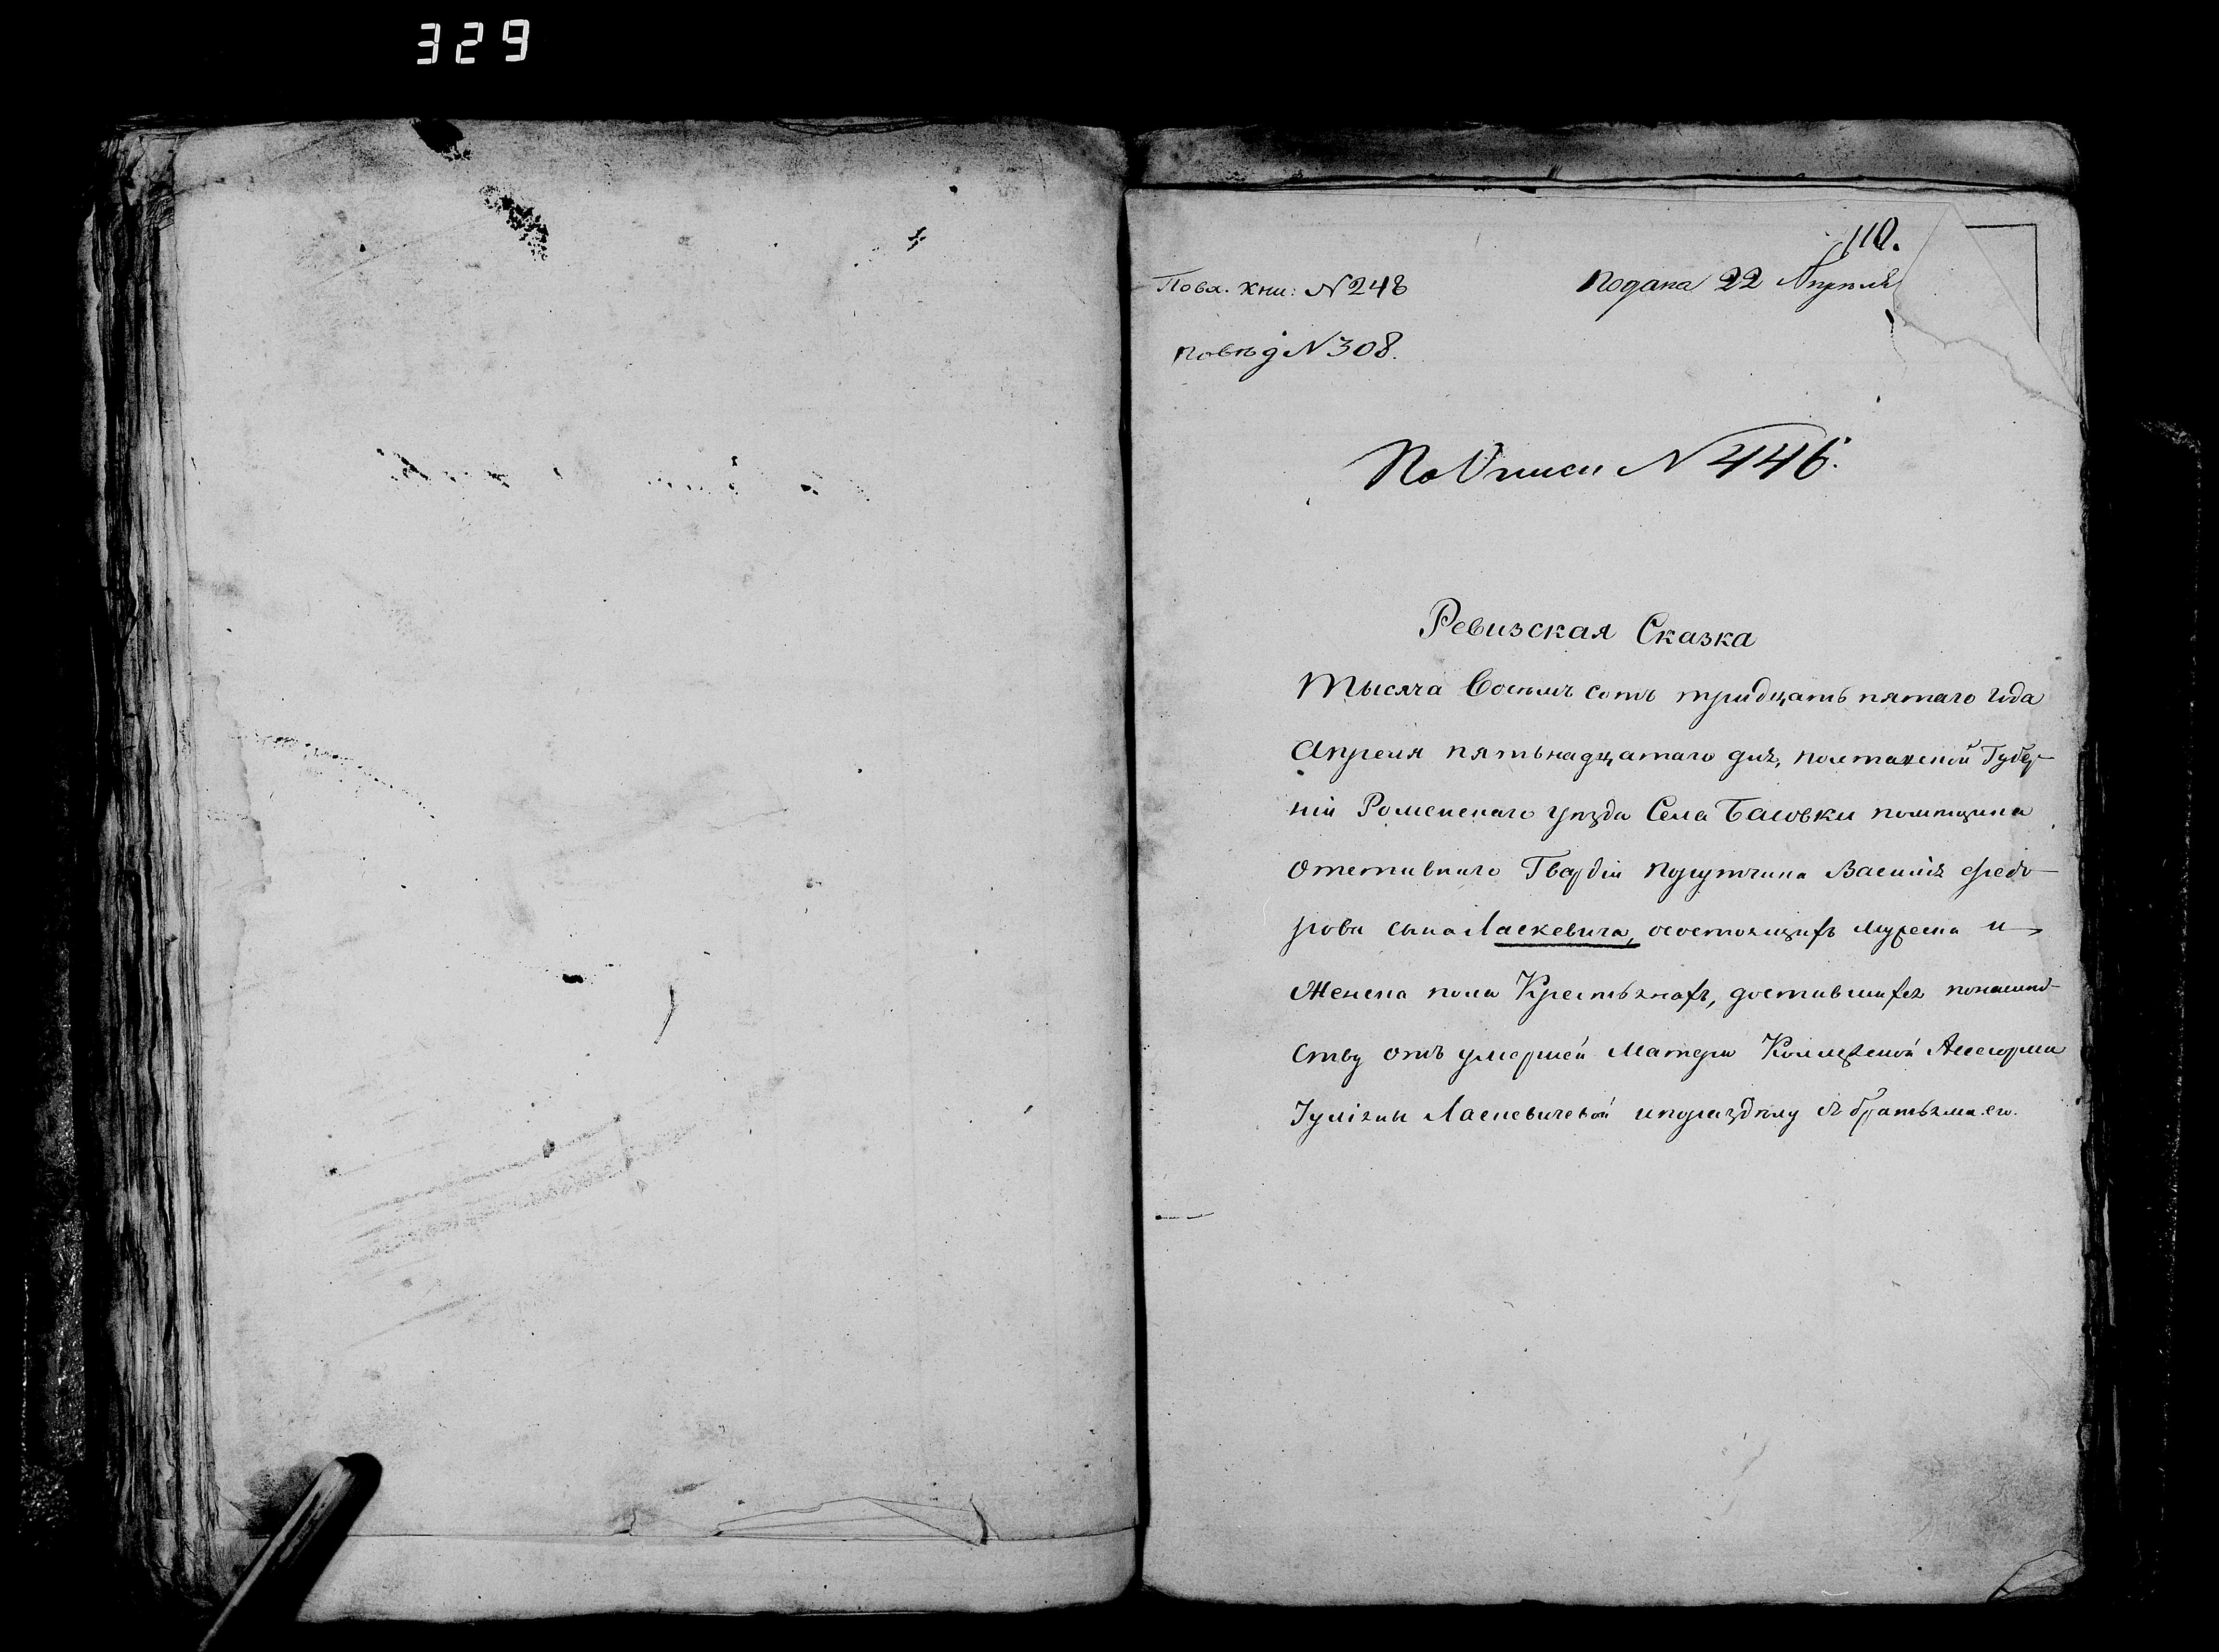 329
110.
Повх. кни: N 248
Подана 22 Апреля
Повѣд N 308.
По Описи N 446.
Ревизская Сказка
Тысяча Восемъ сотъ тридцать пятаго года
Апреля пятьнадцатаго дня, Полтавской Губер-
ніи Роменскаго уѣзда Села Басовки помещика
отставнаго Гвардіи Порутчика Василія Федо-
рова сына Ласкевича, о состоящихъ мужеска и
Женска пола Крестьянахъ, доставшихся по наслед-
ству отъ умершей Матери Коллежской Ассесорши
Іуліяны Ласкевичевой и по раздѣлу съ братьями его.